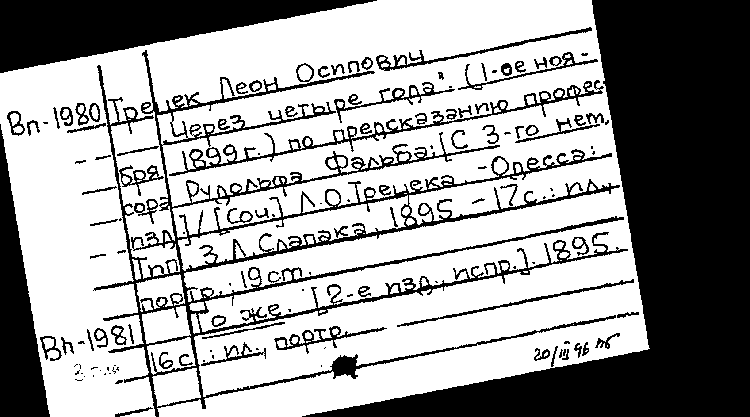 Вп-1980 Трецек, Леон Осипович
Через четыре года: (1-ое ноя-
бря 1899г.) по предсказанию профес-
сора Рудольфа Фальба: [С 3-го нем.
изд.] / [Соч.] Л.О.Трецека. - Одесса:
Тип. З.Л.Слапака, 1895. - 17с.: ил.,
портр.; 19см.
То же. [2-е изд., испр.]. 1895.
Вп-1981 16с.: ил., портр.
20/III 96